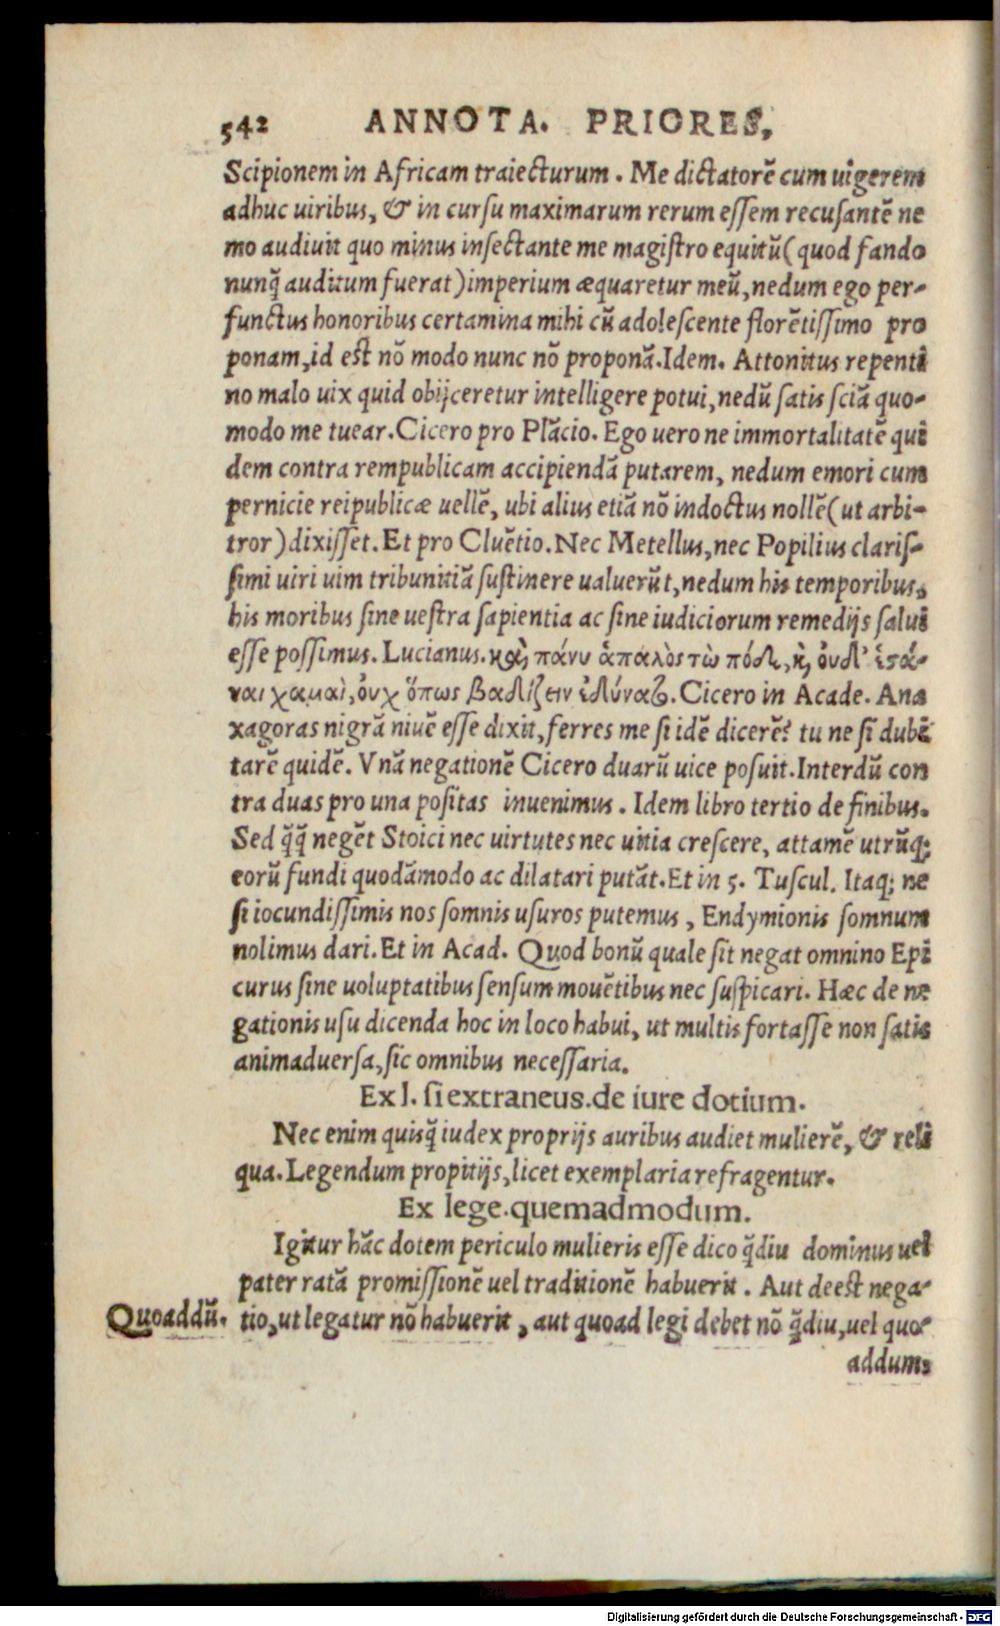 542 ANNOTA. PRIORES,
Scipionem in Africam traiecturum. Me dictatorē cum uigerem
adhuc uiribus, & in cursu maximarum rerum essem recusantē ne
mo audiuit quo minus insectante me magistro equitū (quod fando
nunq̄ auditum fuerat) imperium æquaretur meū, nedum ego per-
functus honoribus certamina mihi cū adolescente florētissimo pro
ponam, id est nō modo nunc nō proponā. Idem. Attonitus repenti
no malo uix quid obijceretur intelligere potui, nedū satis sciā quo-
modo me tuear. Cicero pro Plācio. Ego uero ne immortalitatē qui
dem contra rempublicam accipiendā putarem, nedum emori cum
pernicie reipublicæ uellē, ubi alius etiā nō indoctus nollē (ut arbi-
tror) dixisset. Et pro Cluētio. Nec Metellus, nec Popilius claris-
simi uiri uim tribunitiā sustinere ualuerūt, nedum his temporibus,
his moribus sine uestra sapientia ac sine iudiciorum remedijs salui
esse possimus. Lucianus. καὶ πάνυ ἁπαλὸς τὼ πόδε, κ̀, ὀυδ' ἑστά-
ναι χαμαὶ, ὀυχ ὅπως βαδίζειν ἐδύναζ. Cicero in Acade. Ana
xagoras nigrā niuē esse dixit, ferres me si idē dicerē? tu ne si dubi
tarē quidē. Vnā negationē Cicero duarū uice posuit. Interdū con
tra duas pro una positas inuenimus. Idem libro tertio de finibus.
Sed q̄q̄ negēt Stoici nec uirtutes nec uitia crescere, attamē utrūq;
eorū fundi quodāmodo ac dilatari putāt. Et in 5. Tuscul. Itaq; ne
si iocundissimis nos somnis usuros putemus, Endymionis somnum
nolimus dari. Et in Acad. Quod bonū quale sit negat omnino Epi
curus sine uoluptatibus sensum mouētibus nec suspicari. Hæc de ne
gationis usu dicenda hoc in loco habui, ut multis fortasse non satis
animaduersa, sic omnibus necessaria.
Ex l. si extraneus. de iure dotium.
Nec enim quisq̄ iudex proprijs auribus audiet mulierē, & reli
qua. Legendum propitijs, licet exemplaria refragentur.
Ex lege. quemadmodum.
Igitur hāc dotem periculo mulieris esse dico q̄diu dominus uel
pater ratā promissionē uel traditionē habuerit. Aut deest nega-
Quoaddū. tio, ut legatur nō habuerit, aut quoad legi debet nō q̄diu, uel quo-
addum:
Digitalisierung gefördert durch die Deutsche Forschungsgemeinschaft - DFG